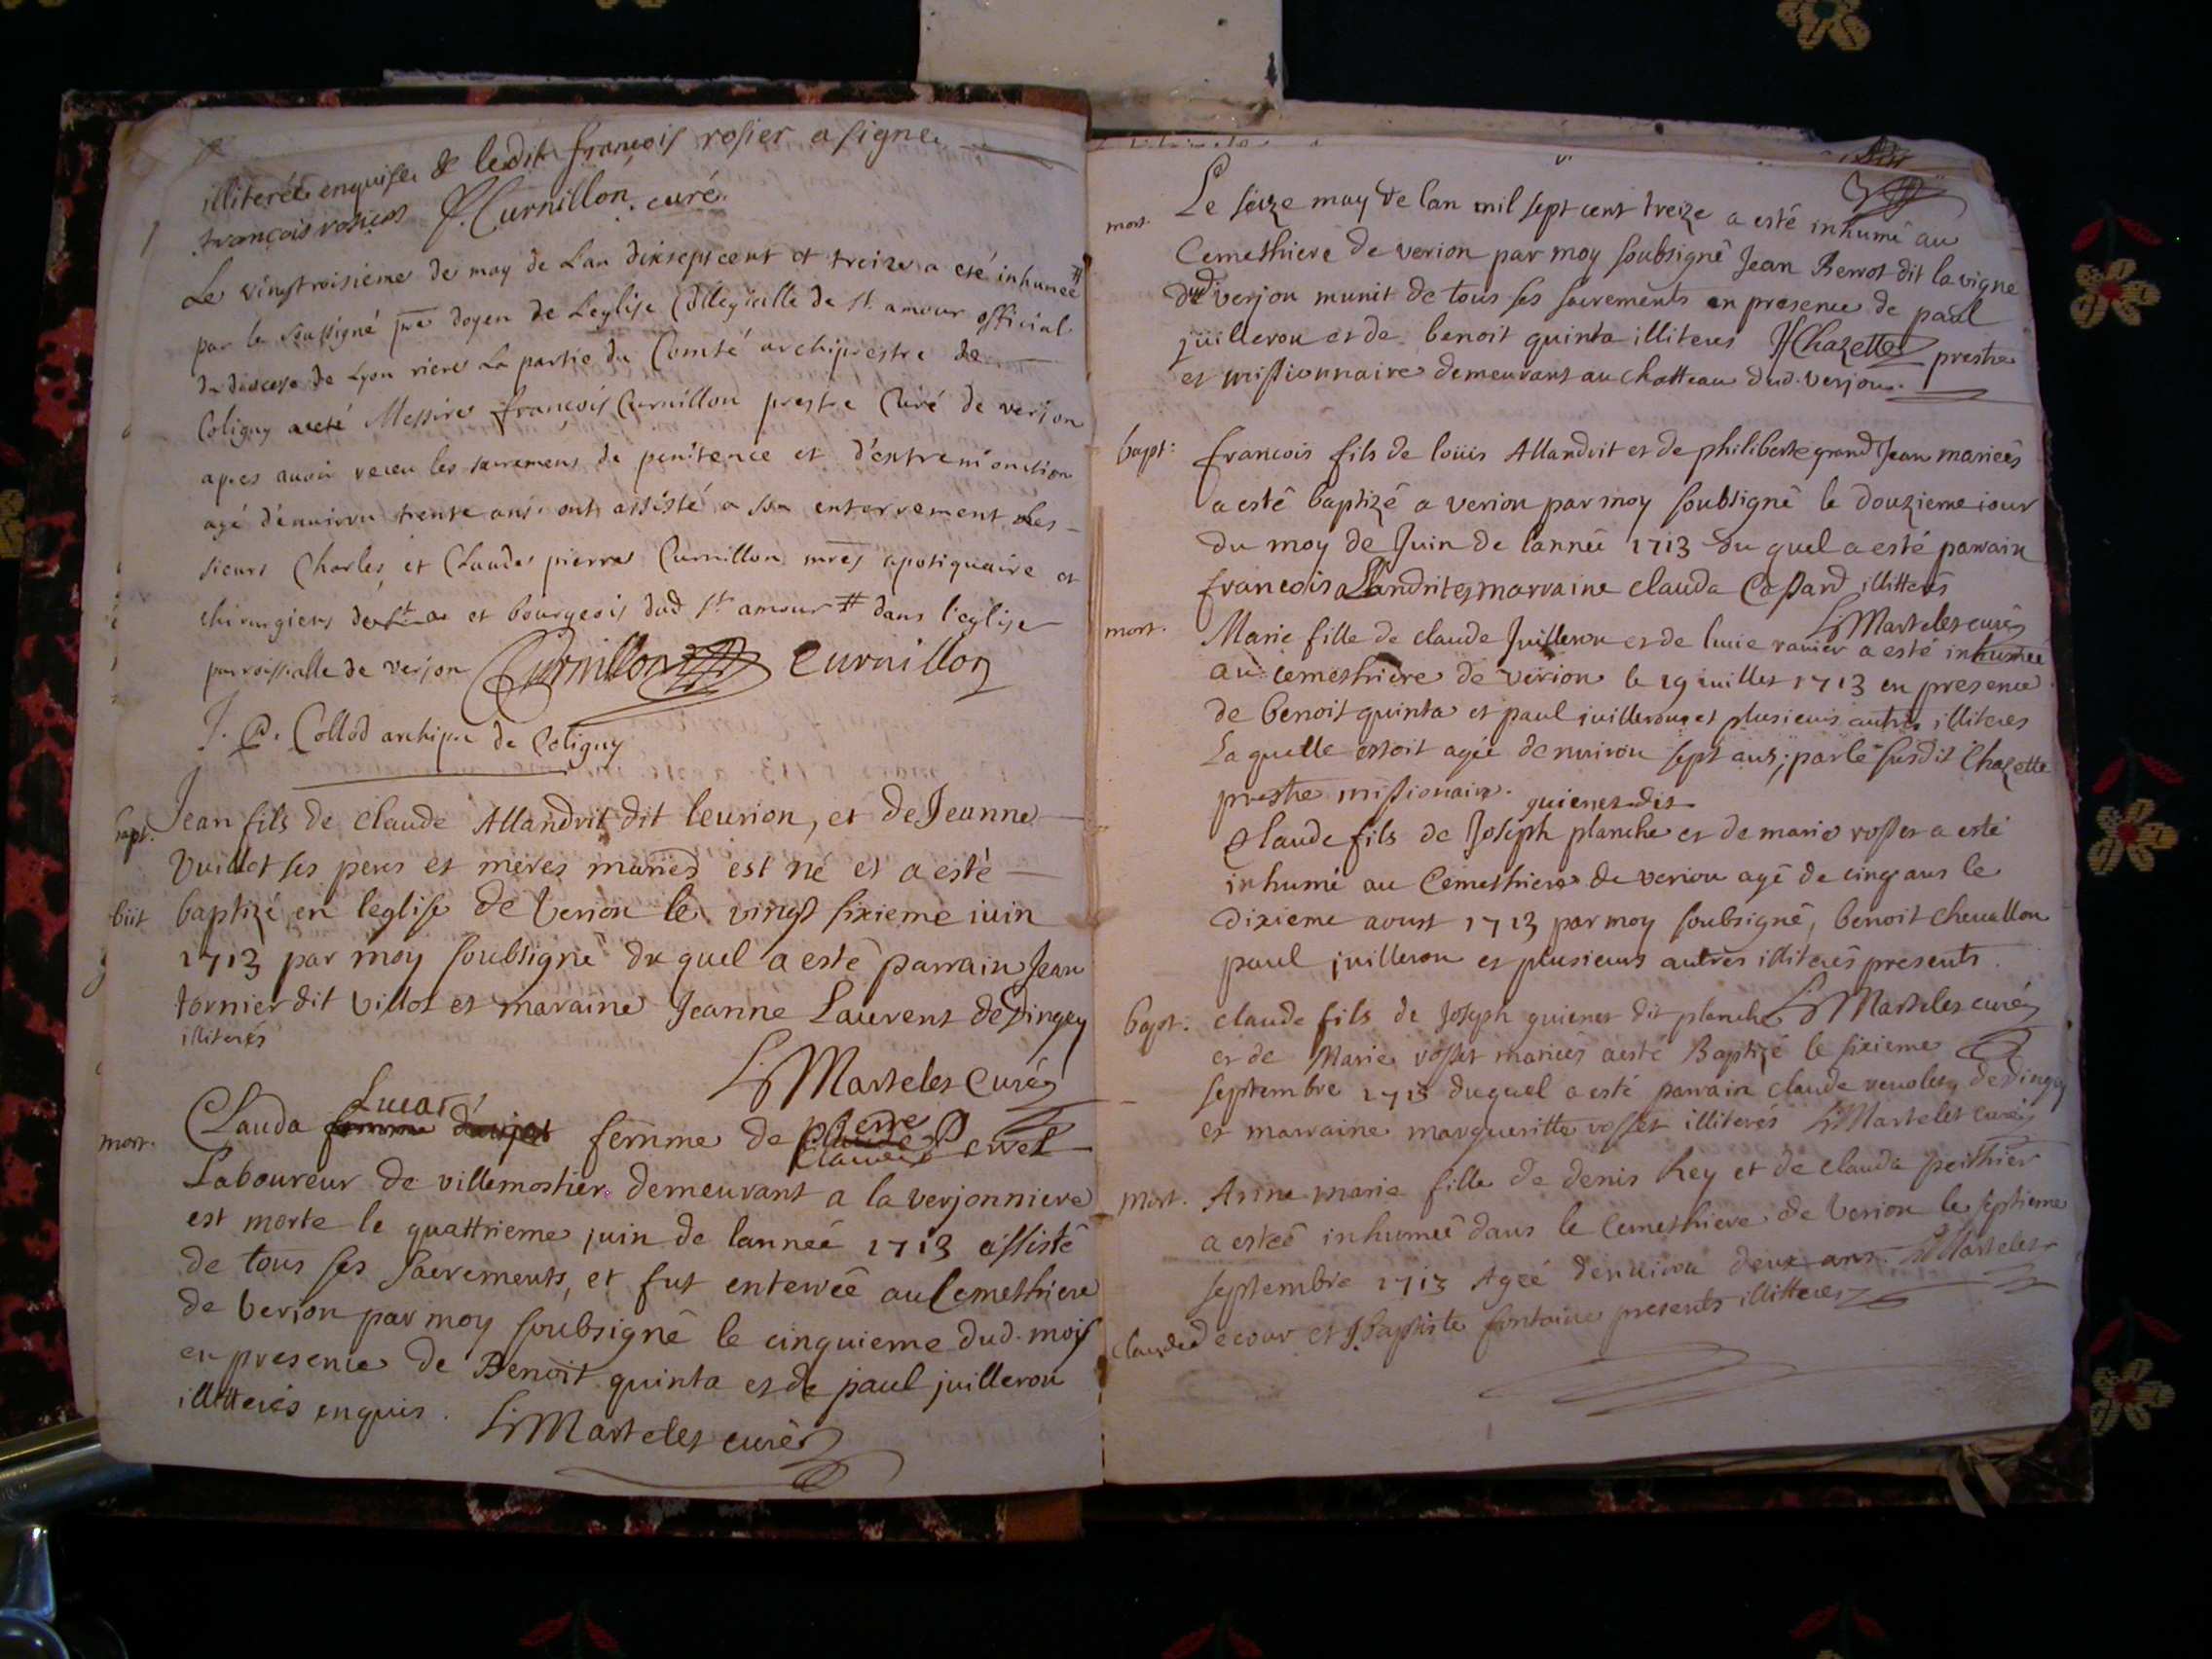 illiterée enquise & ledit françois rosier a signe
françois rosier F. Curnillon. curé.
Le vingtroisiéme de may de Lan dixsept cent et treize a eté inhumeé #
par le soussigné pre doyen de Leglise Collegialle de st. amour official
du diocese de Lyon riere La partie du Comté archiprestre de
Coligny Messire françois Curnillon prestre Curé de verjon
apres avoir receu les sacremens de penitence et d'extremonction
agé d'environ trente ans. ont assisté a son enterrement les
sieurs Charles et Claude pierre Curnillon mres apotiquaire et
chirurgiens et bourgeois dud st amour # dans l'eglise
parroissialle de verjon Curnillon Curnillon
J. C. Collod archipre de Coligny
bapt. Jean fils de claude Allandrit dit leurion, et de Jeanne
Vuillot ses peres et meres mariés est né et a esté
baptizé en leglise de Verion le vingt sixieme iuin
1713 par moy soubsigné du quel a esté parrain Jean
tornier dit Villot et maraine Jeanne Laurent de Dingey
illiterés
L Martelet Curé
mort. Clauda Lucat femme de pierre
Laboureur de villemostier demeurant a la verjonniere
est morte le quattrieme juin de lanneé 1713 assisté
de tous ses sacrements, et fut enterreé au Cemethiere
de Verion par moy soubsigné le cinquieme dud. mois
en presence de Benoit quinta et de paul juilleron
illitterés enquis. L Martelet curé
mort. Le seize may de lan mil sept cent treize a esté inhumé au
Cemethiere de verion par moy soubsigné Jean Berrot dit la vigne
dud verjon munit de tous ses sacrements en presence de paul
juilleron et de benoit quinta illiteres Chazette prestre
et missionnaire demeurant au chatteau dud. verjon.
bapt: francois fils de loüis Allandrit et de philiberte grand Jean marieés
a esté baptizé a verion par moy soubsigné le douzieme iour
du moy de Juin de lanneé 1713 du quel a esté parrain
francois allandrit et marraine clauda Cassard illitterés
L Martelet curé
mort. Marie fille de claude Juilleron et de lucie ravier a esté inhumeé
au cemethiere de verion le 19 iuillet 1713 en presence
de benoit quinta et paul juilleron et plusieurs autres illiteres
La quelle estoit agée denviron sept ans; par le susdit Chazette
prestre missionaire.
guienet dit
Claude fils de Joseph planche et de marie rosset a esté
inhumé au Cemethiere de verion agé de cinq ans le
dixieme aoust 1713 par moy soubsigné, benoit chevallon
paul juilleron et plusieurs autres illiterés presents.
L Martelet curé
bapt: claude fils de Joseph guienet dit planche
et de Marie rosset marieés a esté Baptizé le sixieme
septembre 1713 duquel a esté parrain claude de Dingey
et marraine margueritte rosset illiterés L Martelet curé
mort. Anne marie fille de denis Rey et de clauda peithier
a esteé inhumeé dans le Cemethiere de Verion le septieme
septembre 1713 Ageé denviron deux ans. L Martelet
claude decour et J baptiste fontaine presents illitteres